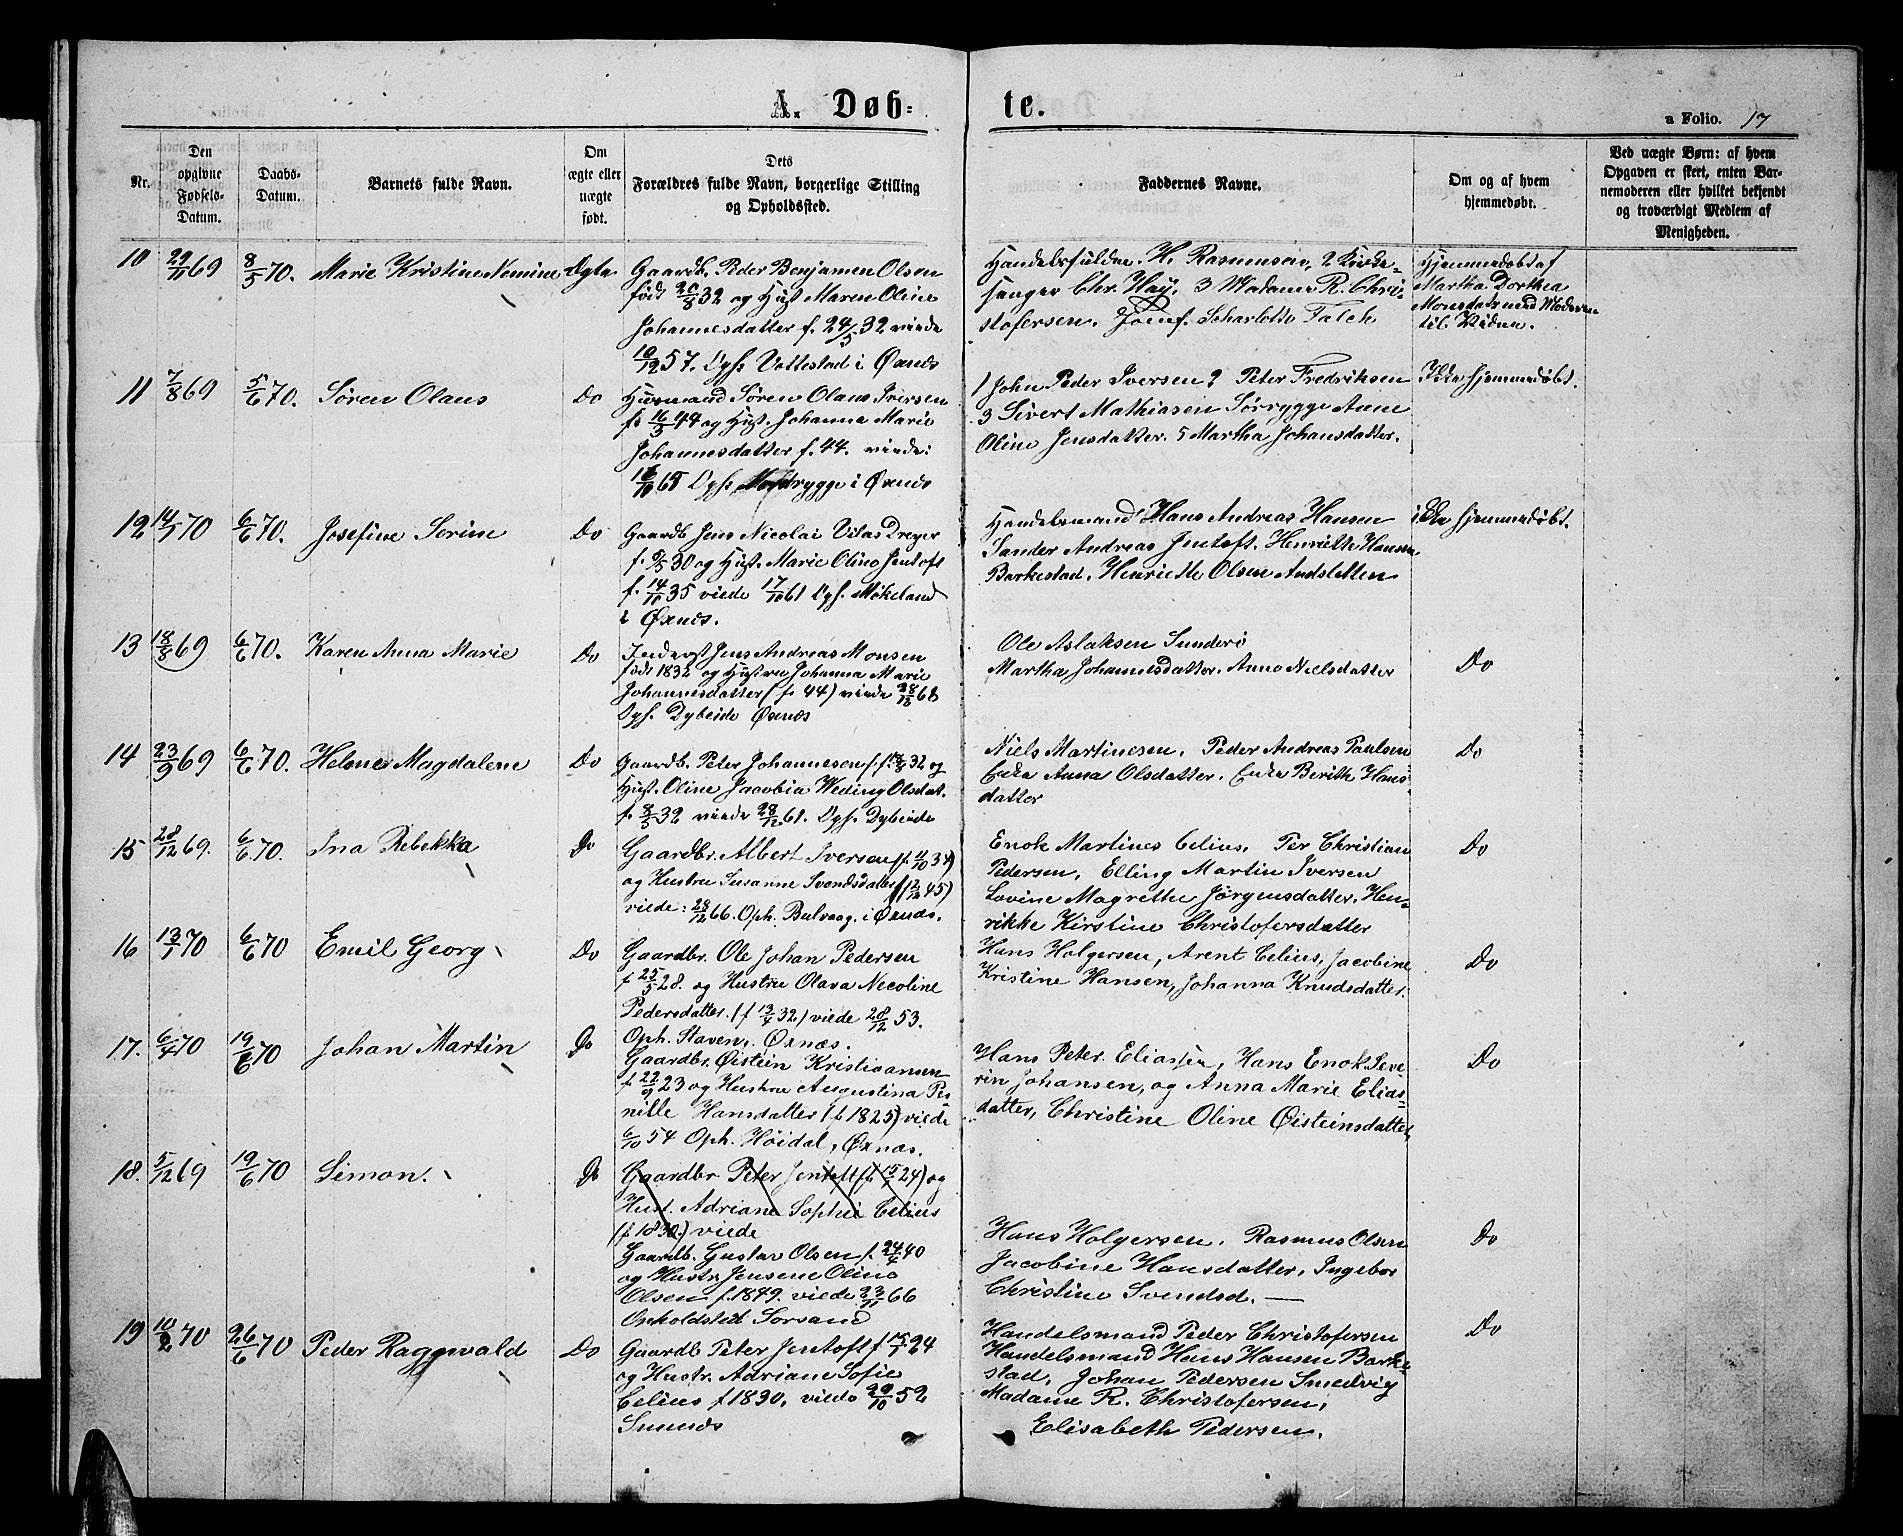 A. Døb-
te.
a Folio. 17
Nr.
Den opgivne Fødsels-Datum.
Daabs-Datum.
Barnets fulde Navn.
Om ægte eller uægte født.
Dets Forældres fulde Navn, borgerlige Stilling og Opholdssted.
Faddernes Navne.
Om og af hvem hjemmedøbt.
Ved uægte Børn: af hvem Opgaven er skeet, enten Barnemoderen eller hvilket bekjendt og troværdigt Medlem af Menigheden.
10 29/11 69 8/5 70. Marie Kristine Nemine Ægte
Gaardb. Peder Benjamen Olsen
født 20/8 32 og Hust Maren Oline
Johannesdatter f. 24/5 32 viede
10/12 57. Oph. Vottestad i Øxnæs
H. Rasmussen, 2 Kirke-
sanger Chr. Høy, 3 Madame R. Chri-
stofersen. Jomf. Scharlotte Falch
Hjemmedøbt af
Martha Dorthea
Monsdatr med Moderen
til Vidne.
11 7/8 69 5/6 70. Søren Olaus Do
Husmand Søren Olaus Iversen
f. 16/3 44 og Hust. Johanna Marie
Johannesdatter f. 44. viede:
Oph. Nordrygge i Øxnæs
1 John Peder Iversen 2 Peter Fredriksen
3 Sivert Mathiasen Sørrygge Anne
Oline Jensdatter. 5 Martha Johansdatter.
Ikke hjemmedøbt.
12 14/1 70 6/6 70. Josefine Sorine Do
Gaardb Jens Nicolai Vitas Dreyer
f. 9/5 30 og Hust. Marie Oline Jentoft
f. 14/10 35 viede 17/10 61 Oph. Møkeland
i Øxnæs.
Handelsmand Hans Andreas Hansen
Sander Andreas Jentoft. Henriette Hansen
Barkestad. Henriette Olsen Andsletten
ikke hjemmedøbt.
13 18/8 69 6/6 70. Karen Anna Marie Do
Inderst Jens Andreas Monsen
født 1832 og Hustru Johanna Marie
Johannesdatter (f. 44) viede 28/12 68
Oph. Dybeide Øxnæs
Ole Aslaksen Sunderö
Martha Johannesdatter. Anne Nielsdatter
Do
14 23/9 69 6/6 70. Helene Magdalene Do
Gaardb. Peter Johannesen f. 32 og
Hust. Oline Jacobia Weding Olsdat.
f. 8/5 32 viede 28/12 61. Oph. Dybeide
Niels Martinesen. Peder Andreas Paulsen
Enke Anna Olsdatter. Enke Berith Hans-
datter
Do
15 28/12 69. 6/6 70. Ina Rebekka Do
Gaardbr. Albert Iversen (f. 11/10 37)
og Hustru Susanne Svendsdatter (f 12/12 45)
viede: 28/12 66. Oph. Bulvaag. i Øxnæs.
Enok Martines Celius. Per Christian
Pedersen, Elling Martin Iversen
Lovine Magrethe Jørgensdatter. Hen-
rikke Kirstine Christofersdatter
Do
16 13/1 70 6/6 70 Emil Georg Do
Gaardbr. Ole Johan Pedersen
f 25/5 28. og Hustru Olava Necoline
Pedersdatter. (f 13/4 32) viede 28/12 53.
Oph. Staven, Øxnæs.
Hans Holgersen, Arent Celius, Jacobine
Kristine Hansen, Johanna Knudsdatter.
Do
17. 6/4 70 19/6 70 Johan Martin Do
Gaardbr. Øistein Kristiansen
f 22/9 23 og Hustru Augustina Per-
nille Hansdatter (f. 1825) viede
6/10 54 Oph. Höidal, Øxnæs.
Hans Peter Eliassen, Hans Enok Seve-
rin Johansen, og Anna Marie Elias-
datter, Christine Oline Øisteinsdatter,
Do
18. 5/12 69 19/6 70 Simon. Do
Gaardbr Peter Jentoft (f. 15/1 24) og
Hust. Adriane Sophie Celius
(f 1830) viede
Gaardb. Gustav Olsen f. 24/4 40
og Hustr. Jensene Oline
Olsen f. 1849. viede 23/11 66
Opholdsted Sorsand
Hans Holgersen. Rasmus Olsen
Jacobine Hansdatter, Ingebor
Christine Svendsd. —
Do
19 10/2 70 26/6 70 Peder Raggwald Do
Gaardb Peter Jentoft f 15/1 24
og Hustr. Adriane Sofie
Celius f 1830. viede 20/10 52
Smnæs
Handelsmand Peder Christofersen
Handelsmand Hans Hansen Barke-
stad, Johan Pedersen Smedvig
Madame R. Christofersen,
Elisabeth Pedersen.
Do